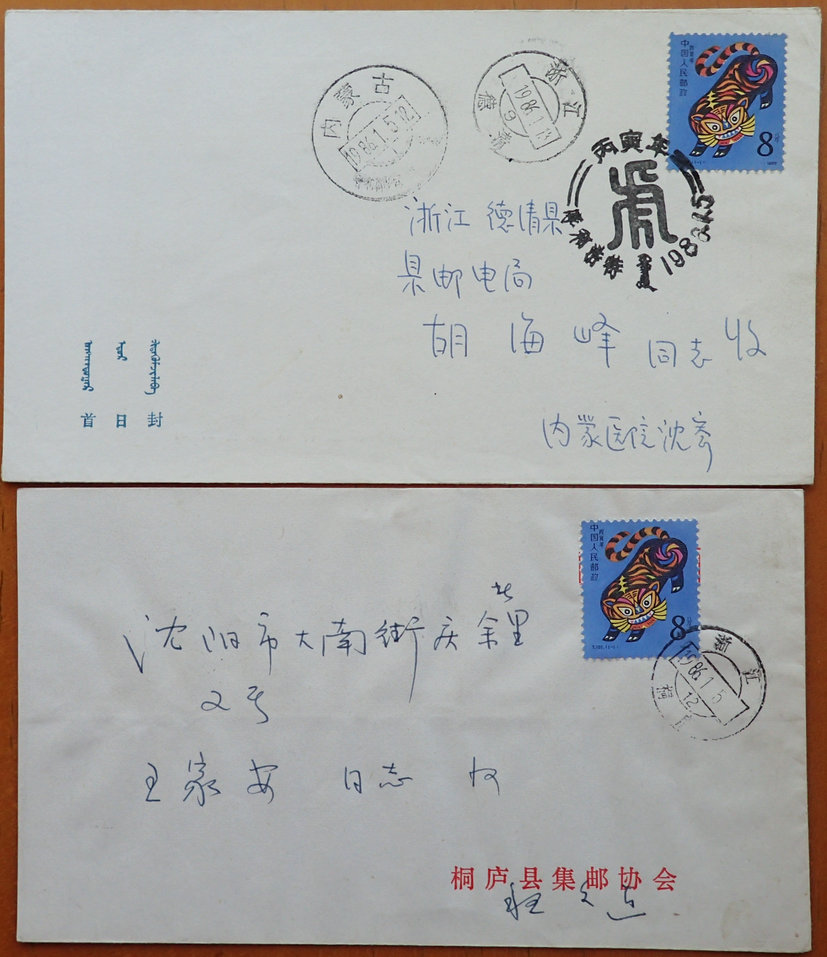 中国人民邮政
丙寅年
8分
内蒙古
1986.1.5.12
浙江
1986.1.13
德清
丙寅年
1986.1.5
浙江 德清县
县邮电局
胡海峰 同志 收
内蒙医院沈
首日封
中国人民邮政
丙寅年
8分
T.107.(1-1)
浙江
1986.1.5
12
桐
沈阳市大南街庆余北里
2号
王家安 同志 收
桐庐县集邮协会